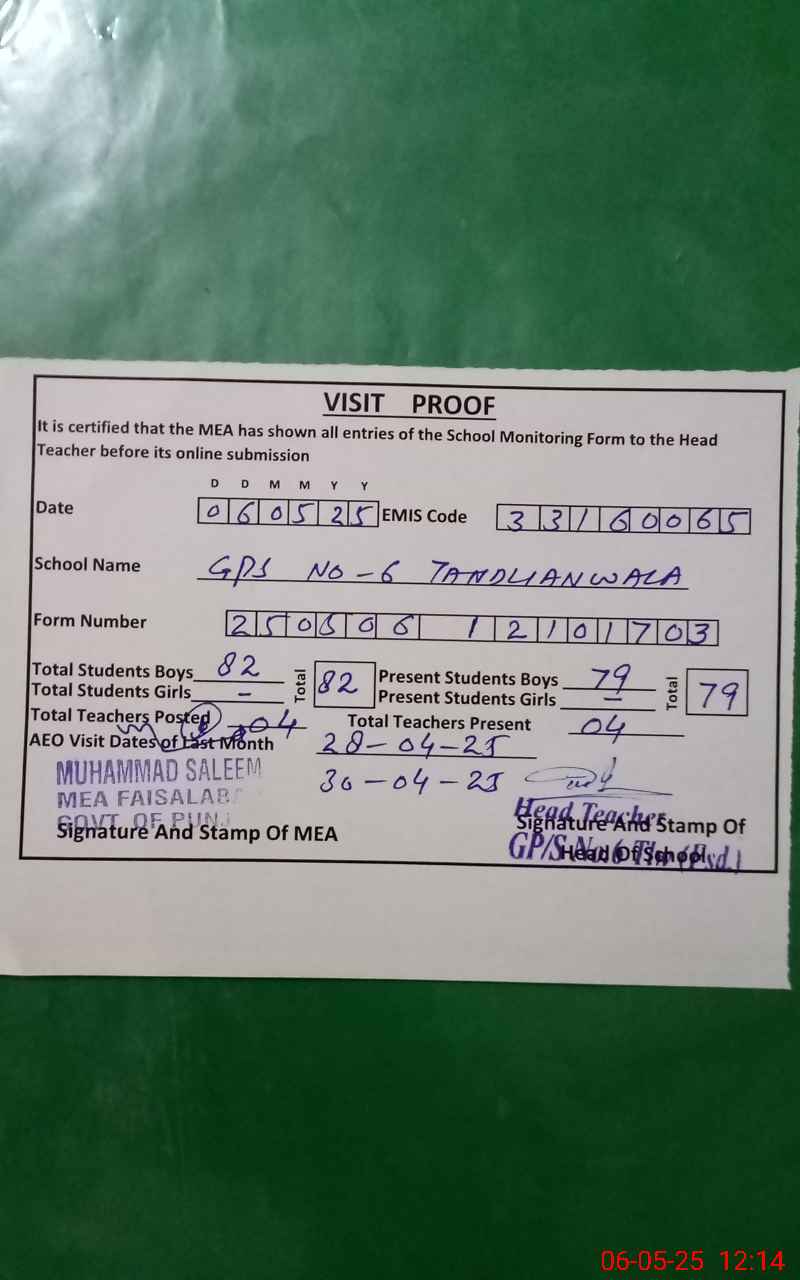 VISIT PROOF
It is certified that the MEA has shown all entries of the School Monitoring Form to the Head
Teacher before its online submission
D D M M Y Y
Date 060525 EMIS Code 33160065
School Name GPS NO-6 TANDLIANWALA
Form Number 250506 12101703
Total Students Boys 82 Total 82 Present Students Boys 79 Total 79
Total Students Girls - Present Students Girls -
Total Teachers Posted 04 Total Teachers Present 04
AEO Visit Dates of Last Month 28-04-25
30-04-25
MUHAMMAD SALEEM
MEA FAISALAB
GOVT OF PUNJ
Signature And Stamp Of MEA
Head Teacher
Signature And Stamp Of
GP/S No.6 Tlw (Fsd.)
Head Of School
06-05-25 12:14